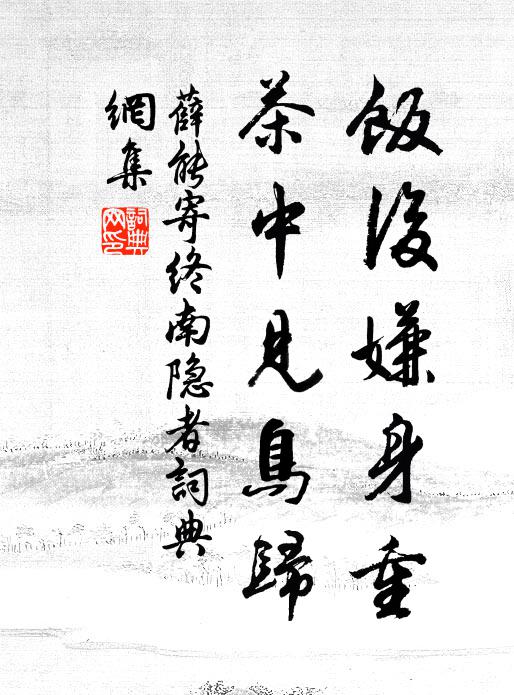 飯後嫌身重
茶中見鳥歸
薛能寄終南隐者詞典
網集
詞典
网印